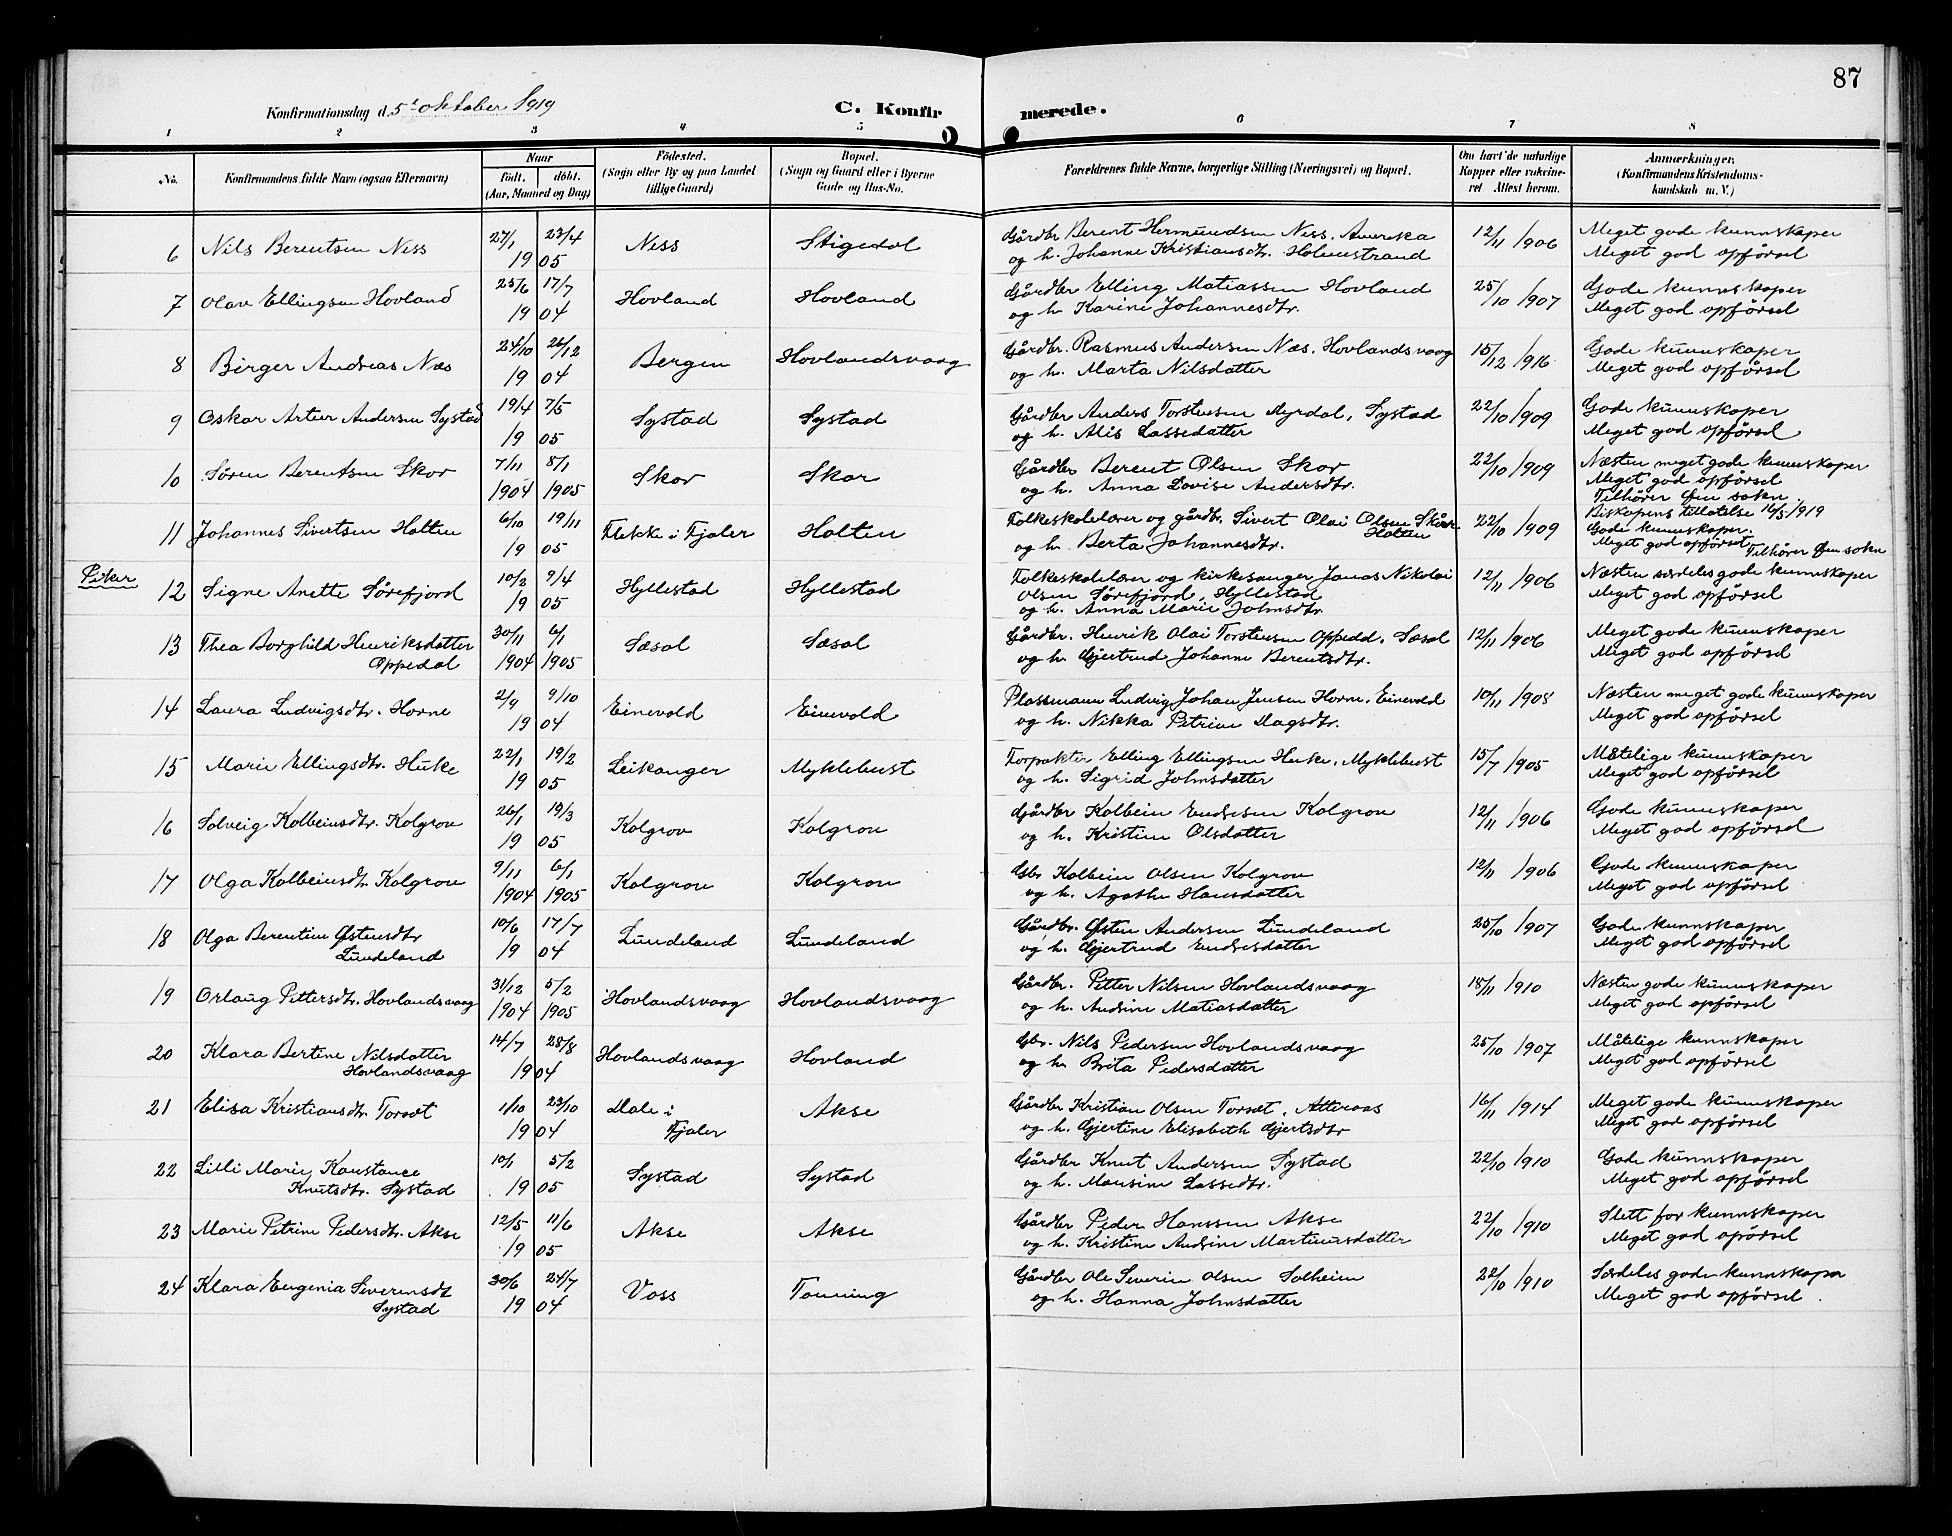 87
Konfirmationsdag d. 5te oktober 1919 C. Konfirmerede.
1 2 3 4 5 6 7 8
No. Konfirmandens fulde Navn (ogsaa Efternavn) Naar født. døbt. (Aar, Maaned og Dag) Fødested. (Sogn eller By og paa Landet tillige Gaard) Bopæl. (Sogn og Gaard eller i Byerne Gade og Hus-No. Forældrenes fulde Navne, borgerlige Stilling (Næringsvei) og Bopæl. Om havt de naturlige Kopper eller vakcineret Attest herom. Anmærkninger. (Konfirmandens Kristendomskundskab m. V.)
6 Nils Berentsen Ness 27/1 23/4 Ness Stigedal Gårdbr Berent Hermundsen Ness, Amerika 12/11 1906 Meget gode kunnskaper
1905 og h. Johanne Kristiansdtr. Holmestrand Meget god opførsel
7 Olav Ellingsen Hovland 25/6 17/7 Hovland Hovland Gårdbr Elling Matiassen Hovland 25/10 1907 Gode kunnskaper
1904 og h. Karine Johannesdtr. Meget god opførsel
8 Birger Andreas Næs 24/10 26/12 Bergen Hovlandsvaag Gårdbr. Rasmus Andersen Næs, Hovlandsvaag 15/12 1916 Gode kunnskaper
1904 og h. Marta Nilsdatter Meget god opførsel
9 Oskar Artur Andersen Systad 19/4 7/5 Systad Systad Gårdbr Anders Torstensen Myrdal, Systad 22/10 1909 Gode kunnskaper
1905 og h. Alis Lassedatter Meget god opførsel
10 Søren Berentsen Skor 7/11 8/1 Skor Skor Gårdbr Berent Olsen Skor 22/10 1909 Næsten meget gode kunnskaper
1904 1905 og h. Anna Lovise Andersdtr. Meget god opførsel
Tilhører Øen sokn.
11 Johannes Sivertsen Holten 6/10 19/11 Flekke i Fjaler Holten Folkeskolelærer og gårdbr. Sivert Olai Olsen Skår Holten 22/10 1909 Biskopens tillatelse 16/5 1919
Gode kunnskaper.
1905 og h. Berta Johannesdtr. Meget god opførsel Tilhører Øen sokn
Piker
12 Signe Anette Sørefjord 10/2 9/4 Hyllestad Hyllestad Folkeskolelærer og kirkesanger Jonas Nikolai 12/11 1906 Næsten særdeles gode kunnskaper
1905 Olsen Sørefjord, Hyllestad Meget god opførsel
og h. Anna Marie Johnsdtr.
13 Thea Borghild Henriksdatter 30/11 6/1 Sæsol Sæsol Gårdbr. Henrik Olai Torstensen Oppedd. Sæsol 12/11 1906 Meget gode kunnskaper
Oppedal 1904 1905 og h. Gjertrud Johanne Berentsdtr. Meget god opførsel
14 Laura Ludvigsdtr. Horne 2/9 9/10 Einevold Einevold Plassmann Ludvig Johan Jensen Horne, Einevold 10/11 1908 Næsten meget gode kunnskaper
1904 og h. Nikka Petrine Dagsdtr. Meget god opførsel
15 Marie Ellingsdtr. Huke 22/1 19/2 Leikanger Myklebust Forpakter Elling Ellingsen Huke, Myklebust 15/7 1905 Måtelige kunnskaper
1905 og h. Sigrid Johnsdatter Meget god opførsel
16 Solveig Kolbeinsdtr. Kolgrov 26/1 19/3 Kolgrov Kolgrov Gårdbr Kolbein Endresen Kolgrov 12/11 1906 Gode kunnskaper
1905 og h. Kristine Olsdatter Meget god opførsel
17 Olga Kolbeinsdtr. Kolgrov 9/11 6/1 Kolgrov Kolgrov Gbr Kolbein Olsen Kolgrov 12/11 1906 Gode kunnskaper
1904 1905 og h. Agathe Hansdatter Meget god opførsel
18 Olga Berentine Østensdtr 10/6 17/7 Lundeland Lundeland Gårdbr. Østen Andersen Lundeland 25/10 1907 Gode kunnskaper
Lundeland 1904 og h. Gjertrud Endresdatter Meget god opførsel
19 Orlaug Pettersdtr. Hovlandsvaag 31/12 5/2 Hovlandsvaag Hovlandsvaag Gårdbr. Petter Nilsen Hovlandsvaag 18/11 1910 Næsten gode kunnskaper
1904 1905 og h. Andrine Matiasdatter Meget god opførsel
20 Klara Bertine Nilsdatter 14/7 28/8 Hovlandsvaag Hovland Gbr. Nils Pedersen Hovlandsvaag 25/10 1907 Måtelige kunnskaper
Hovlandsvaag 1904 og h Brita Pedersdatter Meget god opførsel
21 Elisa Kristiansdtr. Torsæt 1/10 23/10 Dale i Fjaler Akse Gårdbr Kristian Olsen Torsæt, Atteraas 16/11 1914 Meget gode kunnskaper
1904 og h. Gjertine Elisabeth Gjertsdtr Meget god opførsel
22 Lilli Marie Konstance 10/1 5/2 Systad Systad Gårdbr Knut Andersen Systad 22/10 1910 Gode kunnskaper
Knutsdtr. Systad 1905 og h. Mousine Lassedtr. Meget god opførsel
23 Marie Petrine Pedersdtr. Akse 12/5 11/6 Akse Akse Gårdbr Peder Hanssen Akse 22/10 1910 Slett for kunnskaper
1905 og h. Kristine Andrine Martinusdatter Meget god opørsel
24 Klara Eugenia Severinsdt 30/6 24/7 Voss Tonning Gårdbr Ole Severin Olsen Solheim 22/10 1910 Særdeles gode kunnskaper
Systad 1904 og h. Hanna Johnsdatter Meget god opførsel.